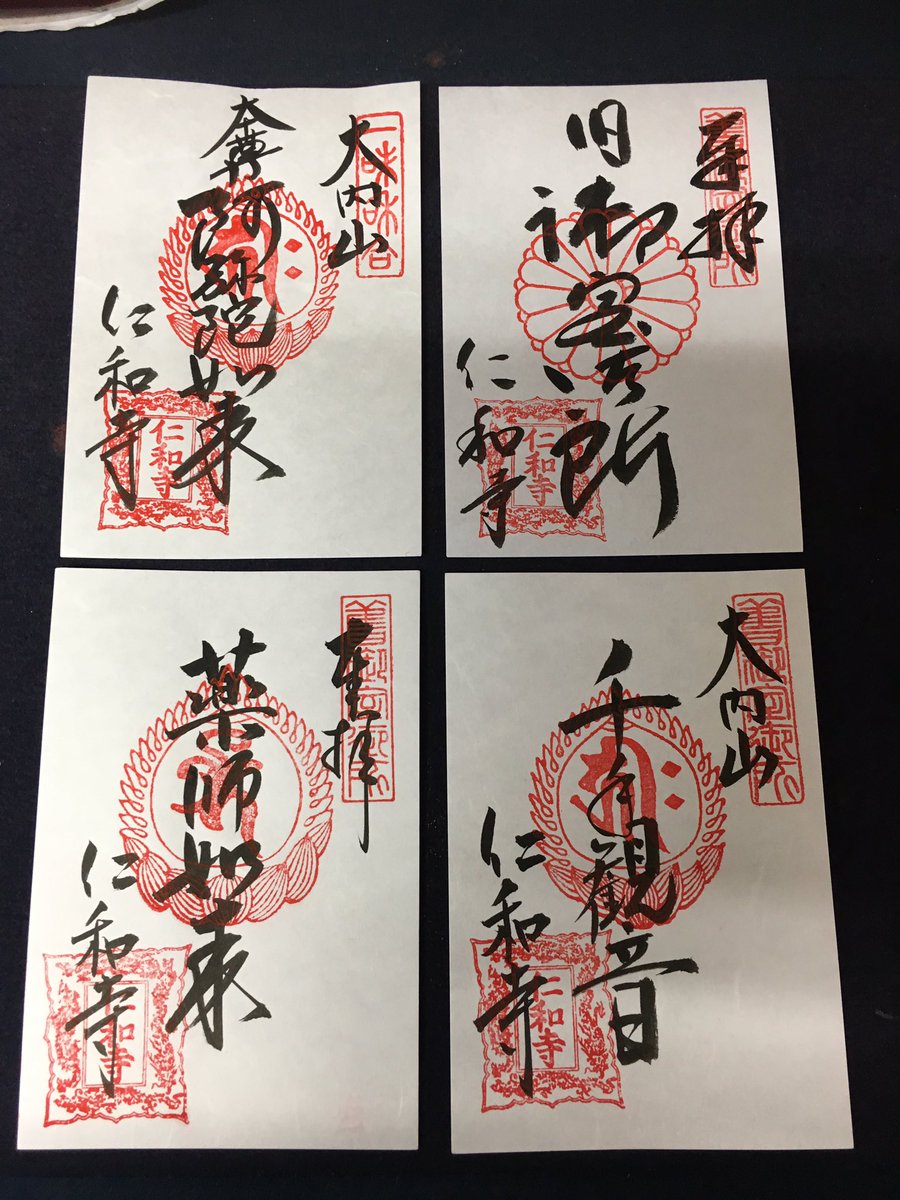 大内山
本尊
阿弥陀如来
仁和寺
仁和寺
奉拝
旧御室御所
仁和寺
仁和寺
奉拝
薬師如来
仁和寺
仁和寺
大内山
千手観音
仁和寺
仁和寺